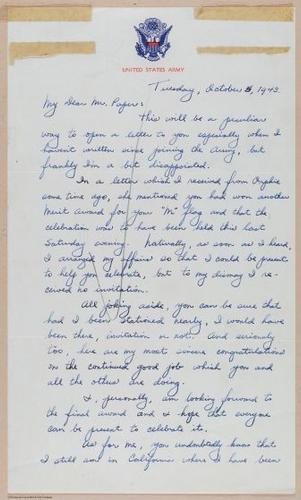 UNITED STATES ARMY
Tuesday, October 5, 1943.
My Dear Mr. Pafer:
This will be a peculiar
way to open a letter to you especially when I
haven't written since joining the Army, but
frankly I'm a bit disappointed.
In a letter which I received from
some time ago, she mentioned you had won another
Merit Award for your "M" flag and that the
celebration was to have been held this last
Saturday evening. Naturally, as soon as I heard,
I arranged my affairs so that I could be present
to help you celebrate, but to my dismay I re-
ceived no invitation.
All joking aside, you can be sure that
had I been stationed nearby, I would have
been there, invitation or not. And seriously
too, here are my most sincere congratulations
on the continued good job which you and
all the others are doing.
I, personally, am looking forward to
the final award and I hope that everyone
can be present to celebrate it.
As for me, you undoubtedly know that
I still am in California where I have been